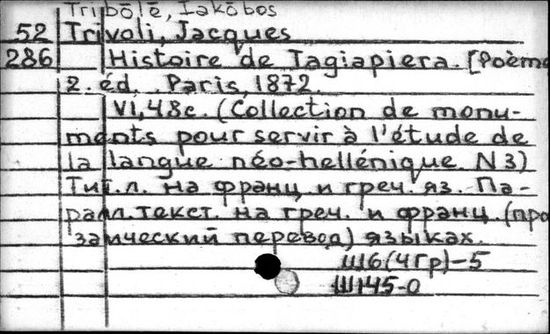 Tribōlē, Iakōbos
52 Trivoli, Jacques
286 Histoire de Tagiapiera. [Poème
2. éd. Paris, 1872.
VI, 48c. (Collection de monu-
ments pour servir à l'étude de
la langue néo-hellénique. N3)
Тит. л. на франц. и греч. яз. Па-
ралл. текст. на греч. и франц. (про
заический перевод) языках.
Ш6(4Гр)-5
Ш145-0